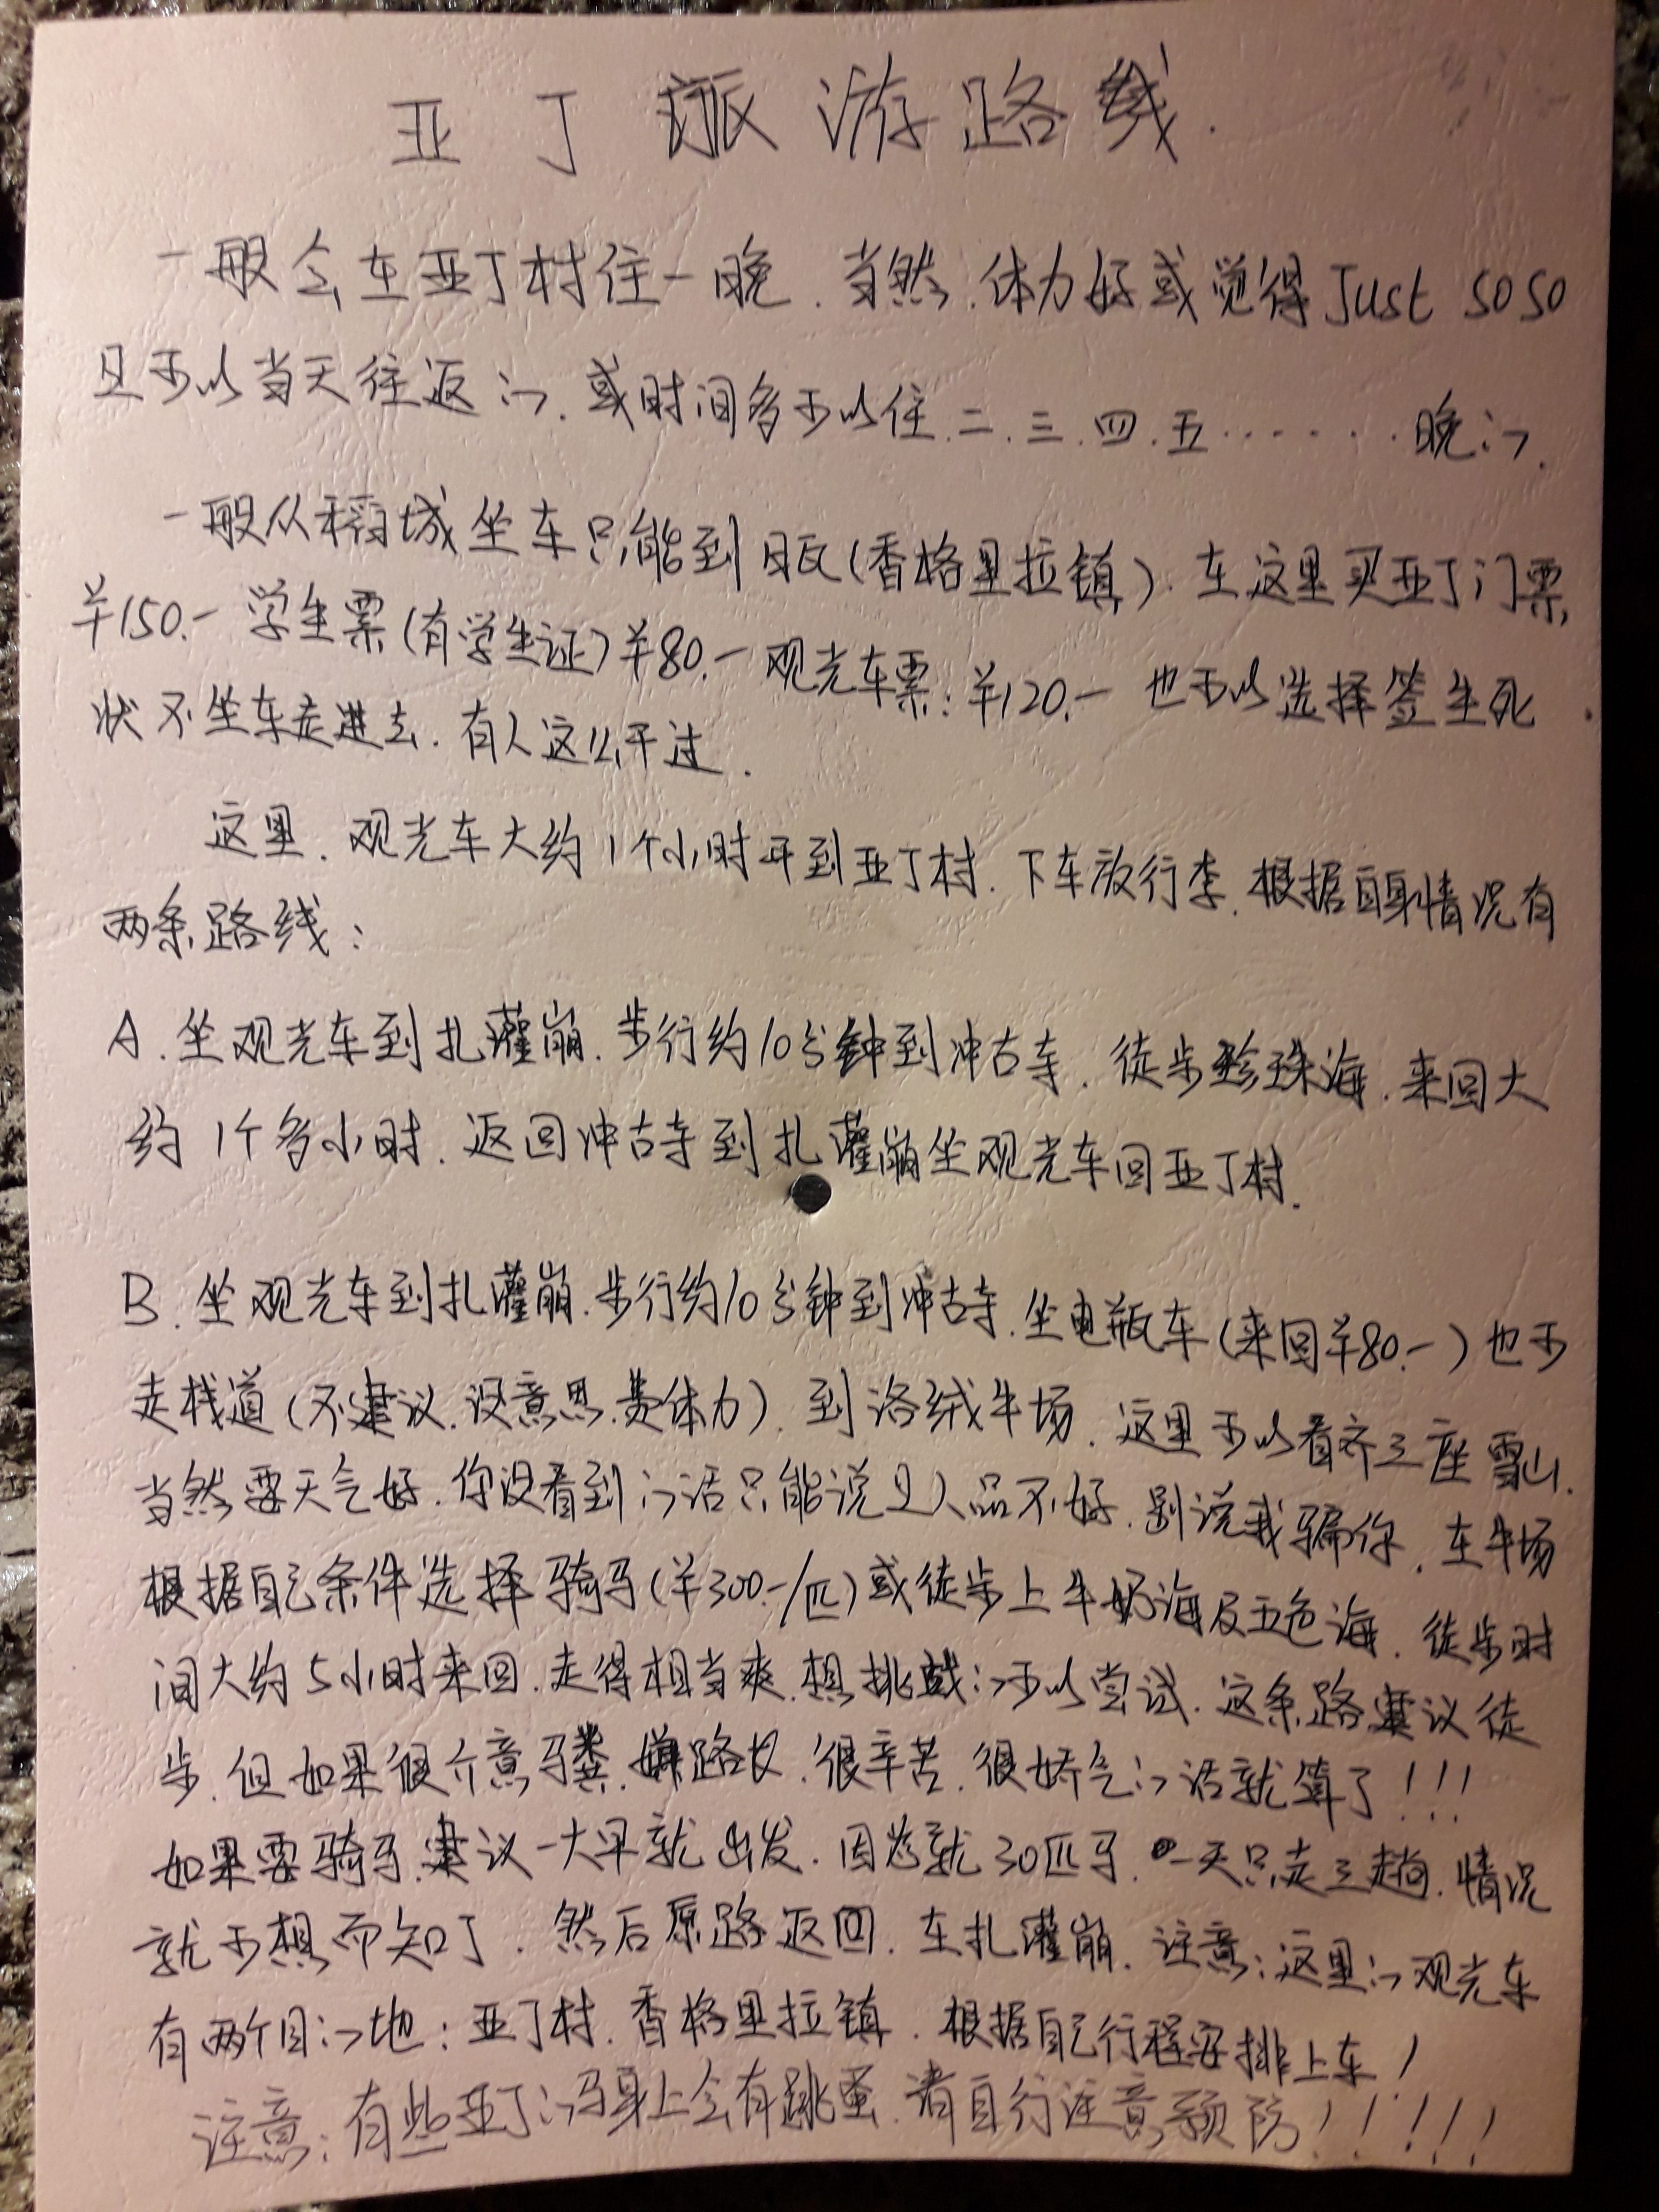 亚丁旅游路线.
一般会在亚丁村住一晚.当然.体力好或觉得Just soso
是可以当天往返的.或时间多可以住.二.三.四.五.......晚的.
一般从稻城坐车只能到日瓦(香格里拉镇).在这里买亚丁门票,
¥150.- 学生票(有学生证)¥80.- 观光车票:¥120.- 也可以选择签生死
状不坐车走进去.有人这么干过.
这里.观光车大约1个小时开到亚丁村.下车放行李.根据自身情况有
两条路线:
A.坐观光车到扎灌崩.步行约10分钟到冲古寺.徒步珍珠海.来回大
约1个多小时.返回冲古寺到扎灌崩坐观光车回亚丁村.
B.坐观光车到扎灌崩.步行约10分钟到冲古寺.坐电瓶车(来回¥80.-)也可
走栈道(不建议.没意思.费体力).到洛绒牛场.这里可以看齐三座雪山.
当然要天气好.你没看到的话只能说是人品不好.别说我骗你.在牛场
根据自己条件选择骑马(¥300.-/匹)或徒步上牛奶海及五色海.徒步时
间大约5小时来回.走得相当爽.想挑战的可以尝试.这条路建议徒
步.但如果很介意马粪.嫌路长.很辛苦.很娇气的话就算了!!!
如果要骑马.建议一大早就出发.因为就30匹马.一天只走三趟.情况
就可想而知了.然后原路返回.在扎灌崩.注意:这里的观光车
有两个目的地:亚丁村.香格里拉镇.根据自己行程安排上车!
注意:有些亚丁的马身上会有跳蚤.请自行注意预防!!!!!